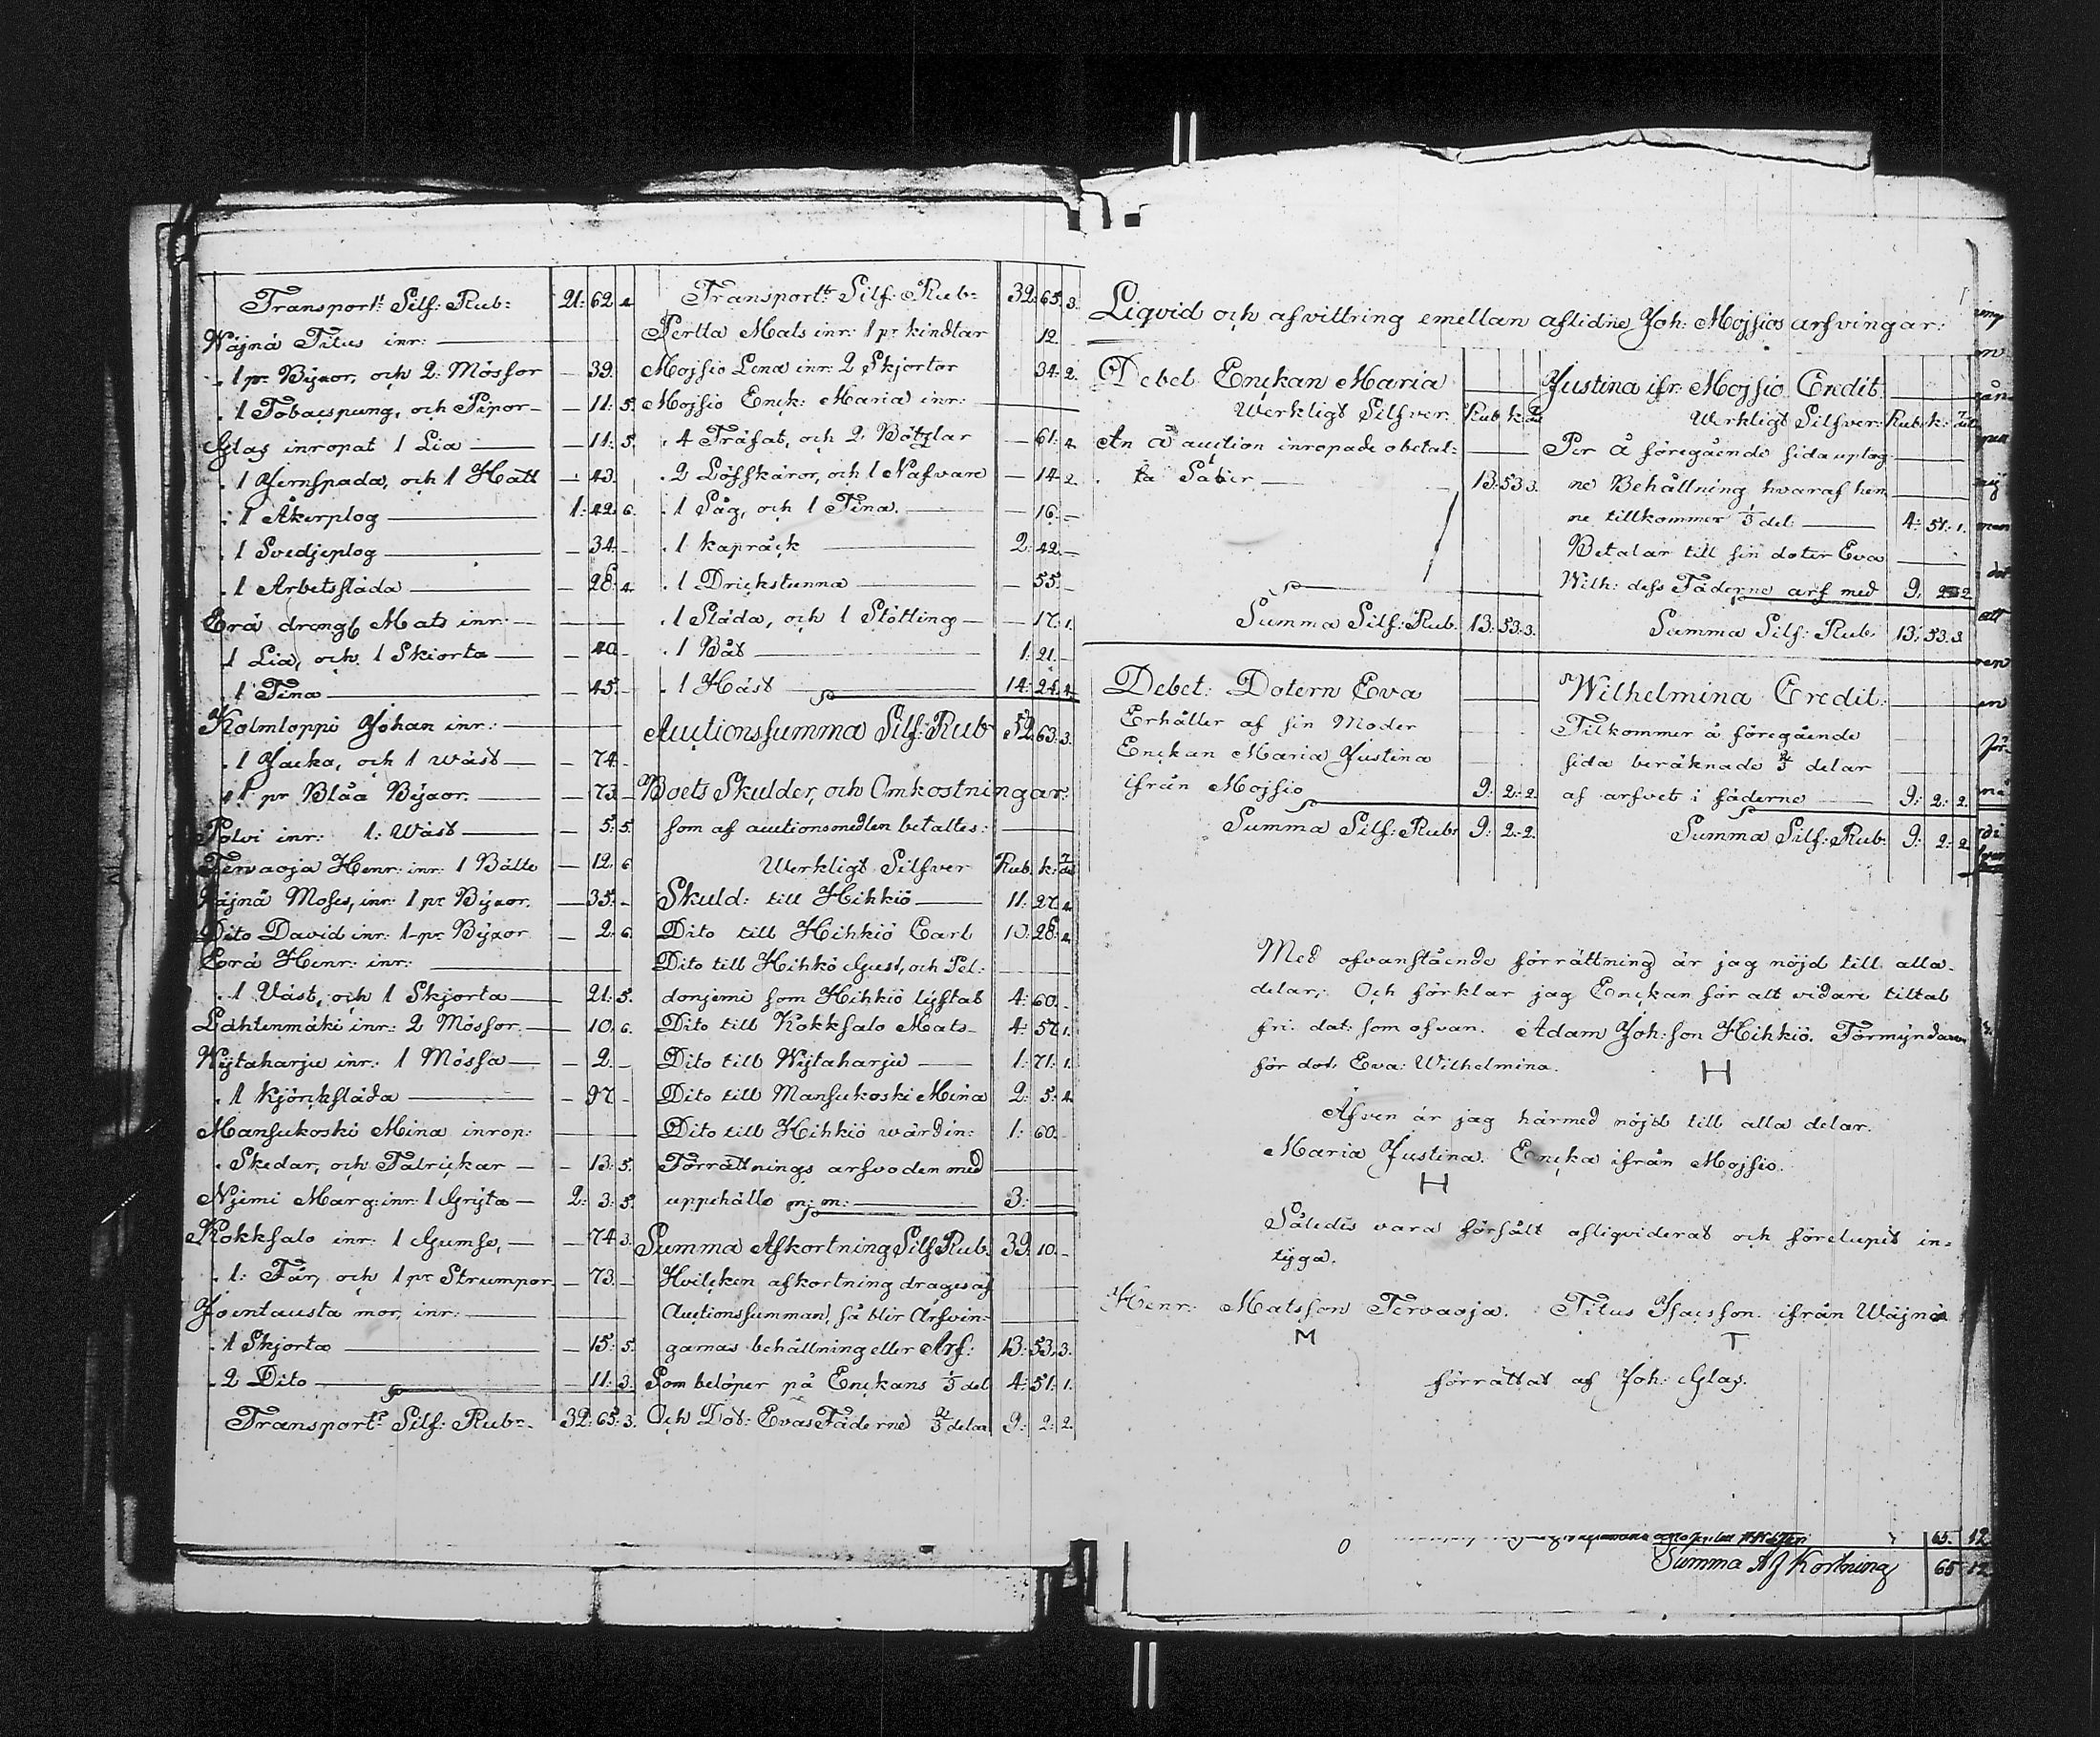 Transport: Silf: Rub: 21: 62. 4.
Wäjnä Titus inr:
. 1 pr Byxor, och 2: Mössor — 39.
. 1 Tobacspung, och Pipor — 11: 5.
Glas inropat 1 Lia — 11: 5.
. 1 Jernspada, och 1 Hatt — 43.
. 1 Åkerplog 1: 42: 6.
. 1 Svedjeplog — 34. -
. 1 Arbetsslåda — 28: 4.
Erä drengs Mats inr:
1 Lia, och 1 Skiorta — 40. -
. 1 Tina — 45. -
Kolmloppi Johan inr:
. 1 Jacka, och 1 wäst — 74. -
. 1 pr Blåa Byxor. — 73. -
Polvi inr: 1: Wäst — 5: 5.
Tervaoja Henr: inr: 1 Bälte — 12. 6
Wäjnä Moses, inr: 1 pr Byxor. — 35. -
Dito David inr: 1 pr Byxor — 2: 6.
Erä Henr: inr:
. 1 Väst, och 1 Skjorta — 21: 5.
Lahtenmäki inr: 2 Mössor. — 10. 6.
Wijtaharju inr: 1 Mössa — 2. -
. 1 Kjörckslåda — 97 -
Mansukoski Mina inrop:
. Skedar, och Talrickar — 13: 5.
Njemi Marg: inr: 1 Gryta — 2: 3: 5.
Kokksalo inr: 1 Gumse, — 74. 3.
. 1: Får, och 1 pr Strumpor — 73. -
Joentausta mor, inr:
. 1 Skjorta — 15: 5.
. 2 Dito — 11: 3.
Transport: Silf: Rub: 32: 65: 3.
Transport: Silf: Rub: 32: 65. 3.
Pertta Mats inr: 1 pr kindtar 12
Mojsio Lena inr: 2 Skjortor 34: 2.
Mojsio Enck: Maria inr:
. 4 Träfat, och 2 Böttlar — 61: 4.
. 2 Löfskäror, och 1 Nafvare — 14: 2.
. 1 Såg, och 1 Tina. — 16: -
. 1 kapräck 2: 42. -
. 1 Drickstunna — 55. -
. 1 Släda, och 1 Stötting — 17: 1.
. 1 Båt 1: 21. -
. 1 Häst 14: 24. 4.
Auctionssumma Silf: Rub 52: 63: 3.
Boets Skulder, och Omkostningar:
som af auctionsmedlen betaltes:
Werkligt Silfver Rub. k:
Skuld: till Hihkiö 11: 27. 4.
Dito till Hihkiö Carl 10: 28: 4.
Dito till Hihkö Gust, och Pel:
donjemi som Hihkiö lyftat 4: 60. -
Dito till Kokksalo Mats 4: 57. 1.
Dito till Wijtaharju 1: 71: 1.
Dito till Mansukoski Mina 2: 5: 4.
Dito till Hihkiö wärdin: 1: 60. -
Förrättnings arfvoden med
uppehälls m: m: 3:
Summa Afkortning Silf Rub. 39. 10. -
Hvilcken afkortning drages af
Auctionssumman, så blir Arfvin=
garnas behållning eller Arf: 13: 53. 3.
Som belöper på Enckans 1/3 del 4: 51: 1.
Och Dot: Evas Fäderne 2/3 delar 9: 2: 2.
Liqvid och afvittring emellan aflidne Joh: Mojsios arfvingar:
Debet Enckan Maria
Werkligt Silfver: Rub k:
An å auction inropade obetal:
ta Saker 13: 53 3.
Summa Silf: Rub. 13: 53: 3.
Justina ifr: Mojsio Credit
Werkligt Silfver: Rub: k:
Per å föregående sida uptog
ne Behållning hvaraf hen
ne tillkommer 1/3 del: 4: 51: 1.
Betalar till sin doter Eva
Wilh: dess Fäderne arf med 9: 2: 2
Summa Silf: Rub. 13: 53. 3
Debet: Dotern Eva
Erhåller af sin Moder
Enckan Maria Justina
ifrån Mojsio 9: 2: 2.
Summa Silf: Rub: 9: 2: 2.
Wilhelmina Credit:
Tilkommer å föregående
sida beräknade 2/3 delar
af arfvet i fäderne 9: 2: 2.
Summa Silf: Rub: 9: 2: 2
Med ofvanstående förrättning är jag nöjd till alla
delar: Och förklar jag Enckan för alt vidare tiltal
fri. dat: som ofvan. Adam Joh:son Hihkiö. Förmyndaren
för dot: Eva: Wilhelmina. H
Äfven är jag härmed nöjd till alla delar.
Maria Justina. Encka ifrån Mojsio.
H
Således vara förfalt afliqviderat och förelupit in=
tyga.
Henr: Matsson Tervaoja. Titus Isacsson. ifrån Wäjnä
M T
förrättat af Joh: Glas.
65. 12
Summa Af Kortning 65 12